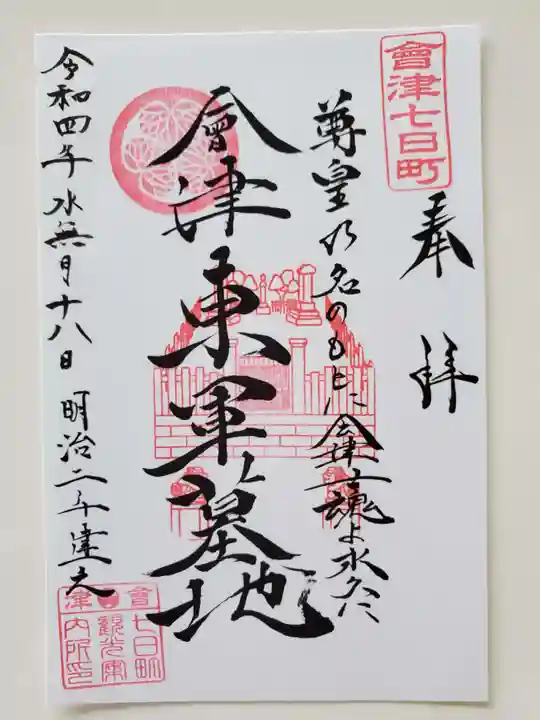 會津七日町
奉拝
尊皇の名のもとに会津士魂よ永久に
會津東軍墓地
令和四年水無月十八日 明治二年建之
會津
七日町
観光案
内所印